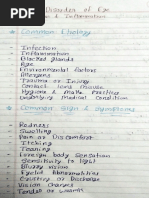 Disorder of Eye
& Inflammation
Common Etiology
- Infection
- Inflammation
- Blocked glands
- Age
- Environmental factors
- Allergens
- Trauma or Injury
- Contact lens
- Hygiene &
Common Sign & Symptoms
- Redness
- Swelling
- Pain or Discomfort
- Itching
- Tearing
- Foreign body Sensation
- Sensitivity to light
- Blurry vision
- Eyelid Abnormalities
- Crusting or Discharge
- Vision Changes
- Tender or warmth